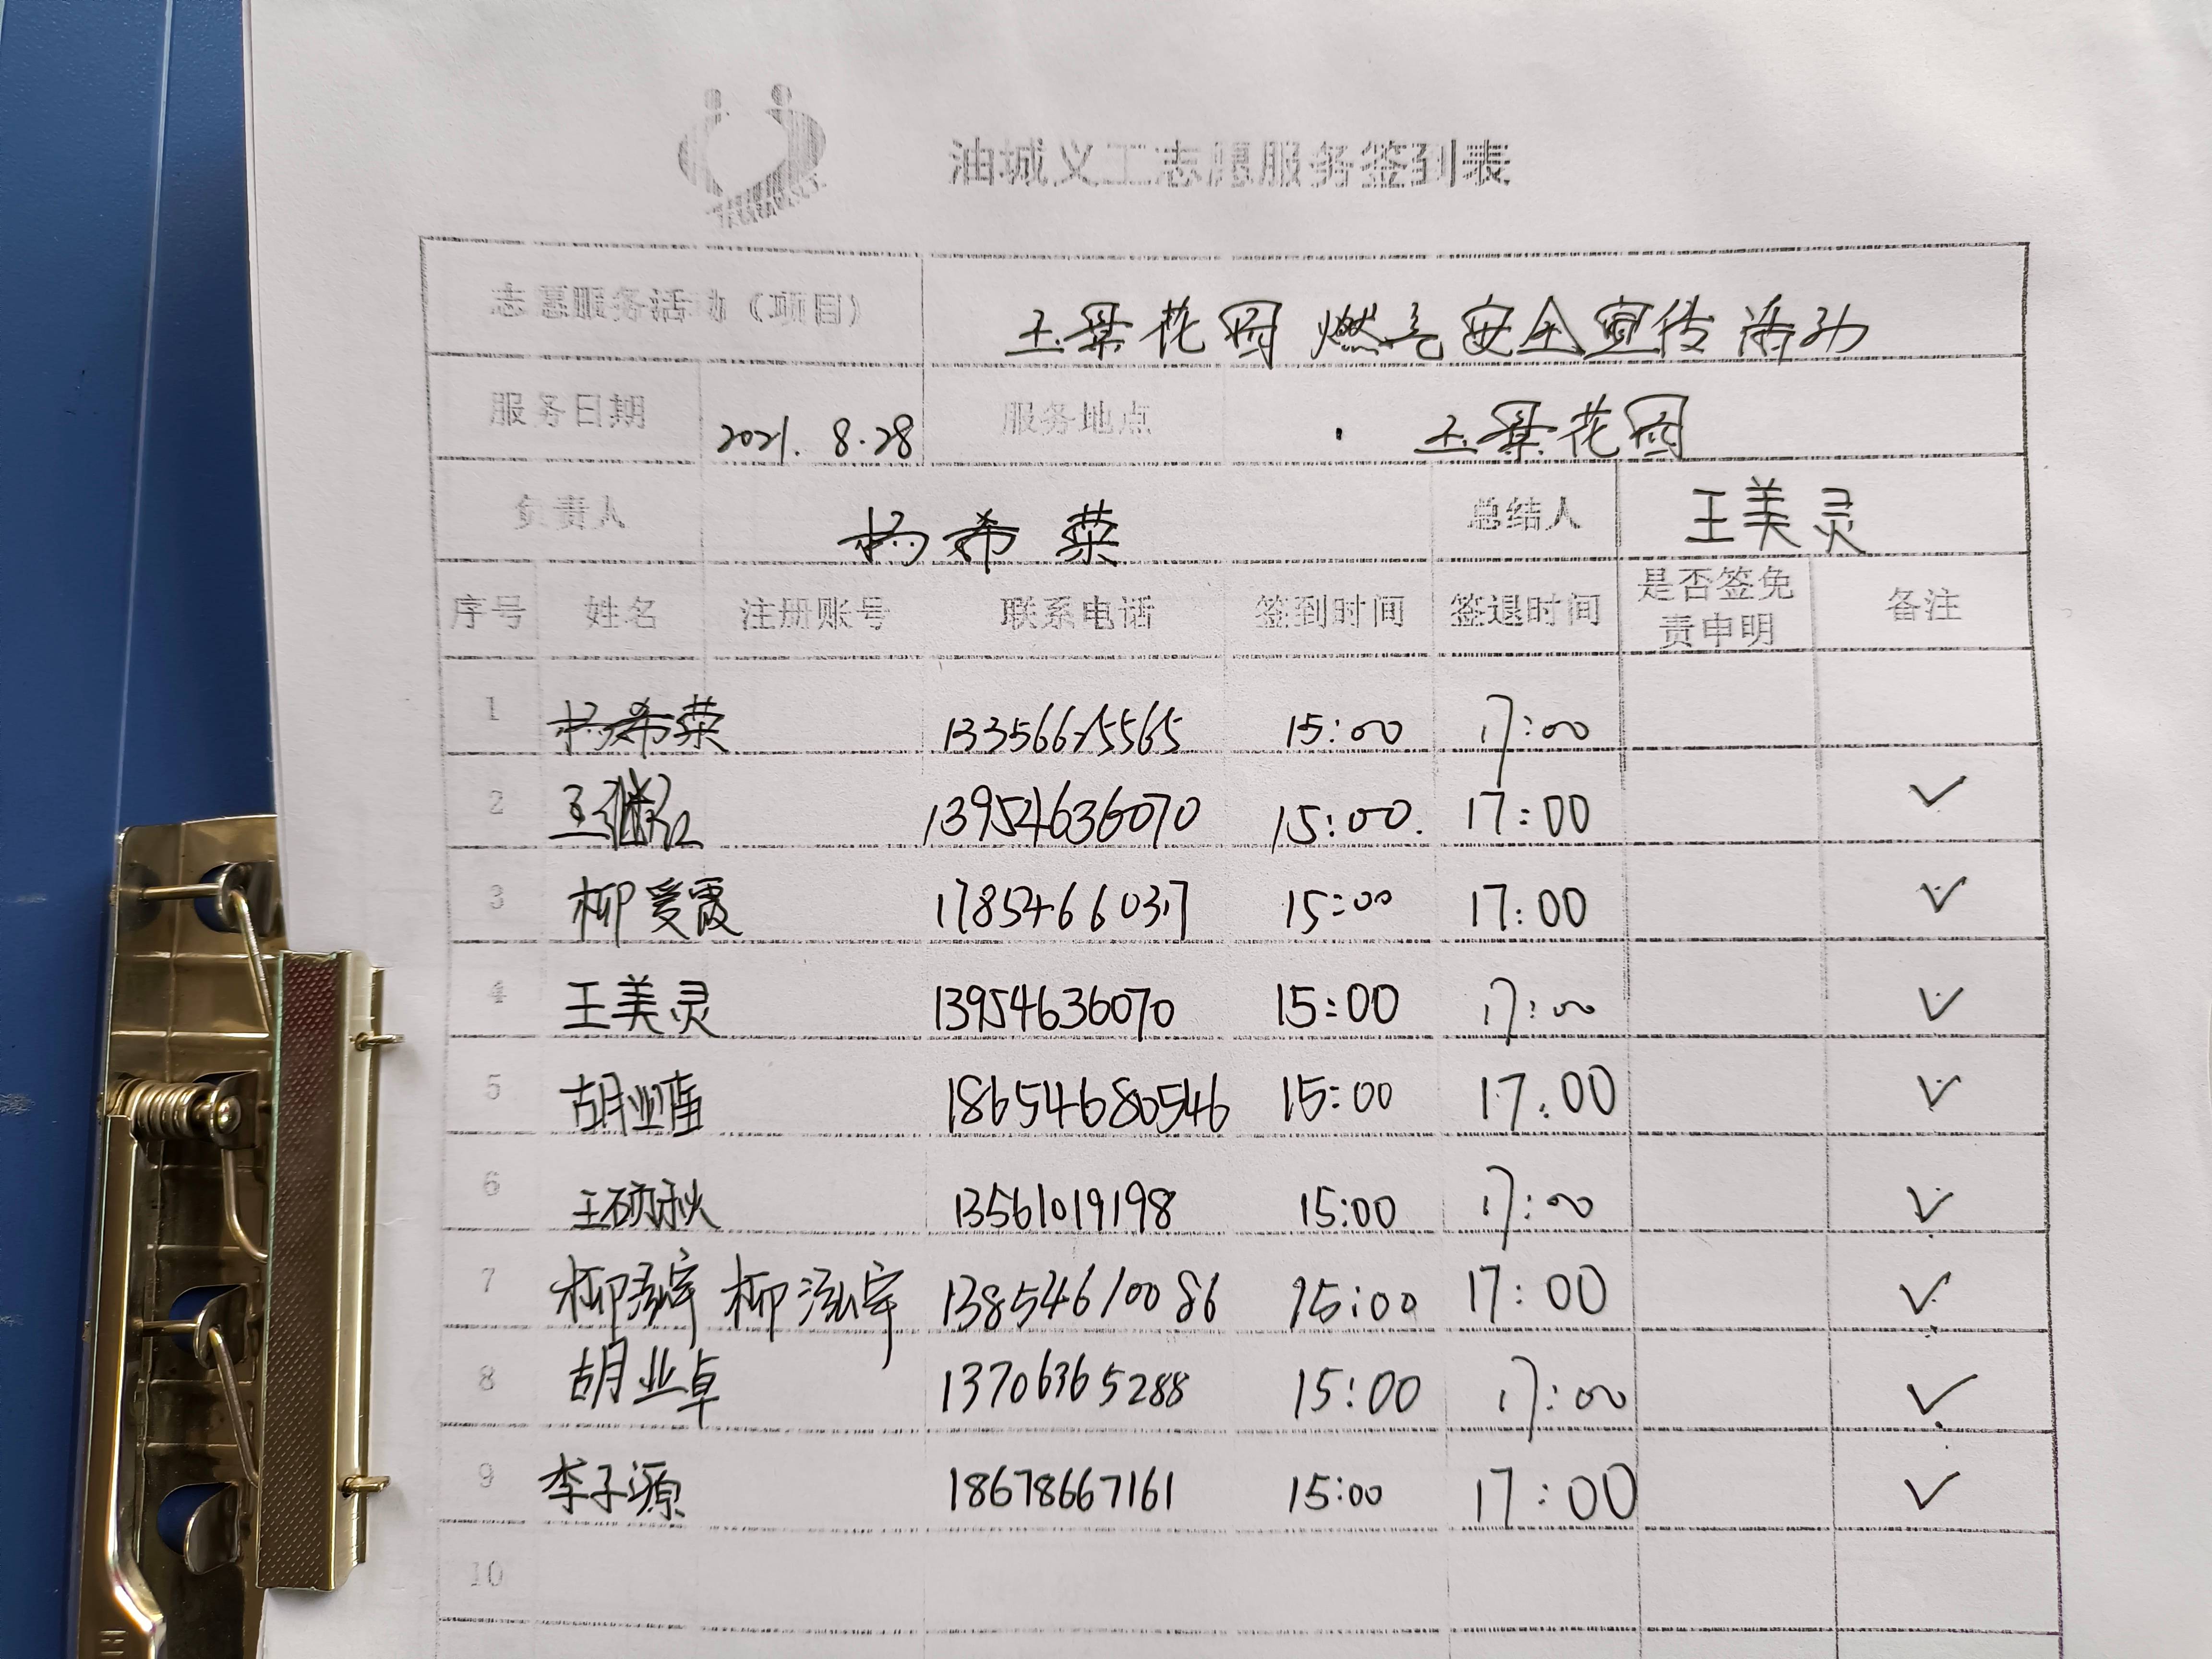 油城义工志愿服务签到表
志愿服务活动（项目） 玉景花园燃气安全宣传活动
服务日期 2021.8.28 服务地点 玉景花园
负责人 杨希荣 总结人 王美灵
序号 姓名 注册账号 联系电话 签到时间 签退时间 是否签免责申明 备注
1 杨希荣 13356615565 15:00 17:00
2 13954636070 15:00. 17:00 ✓
3 柳爱霞 17854660317 15:00 17:00 ✓
4 王美灵 13954636070 15:00 17:00 ✓
5 胡业 18654680546 15:00 17.00 ✓
6 王硕秋 13561019198 15:00 17:00 ✓
7 柳泓宇 柳泓宇 13854610086 15:00 17:00 ✓
8 胡业卓 13706365288 15:00 17:00 ✓
9 李子源 18678667161 15:00 17:00 ✓
10